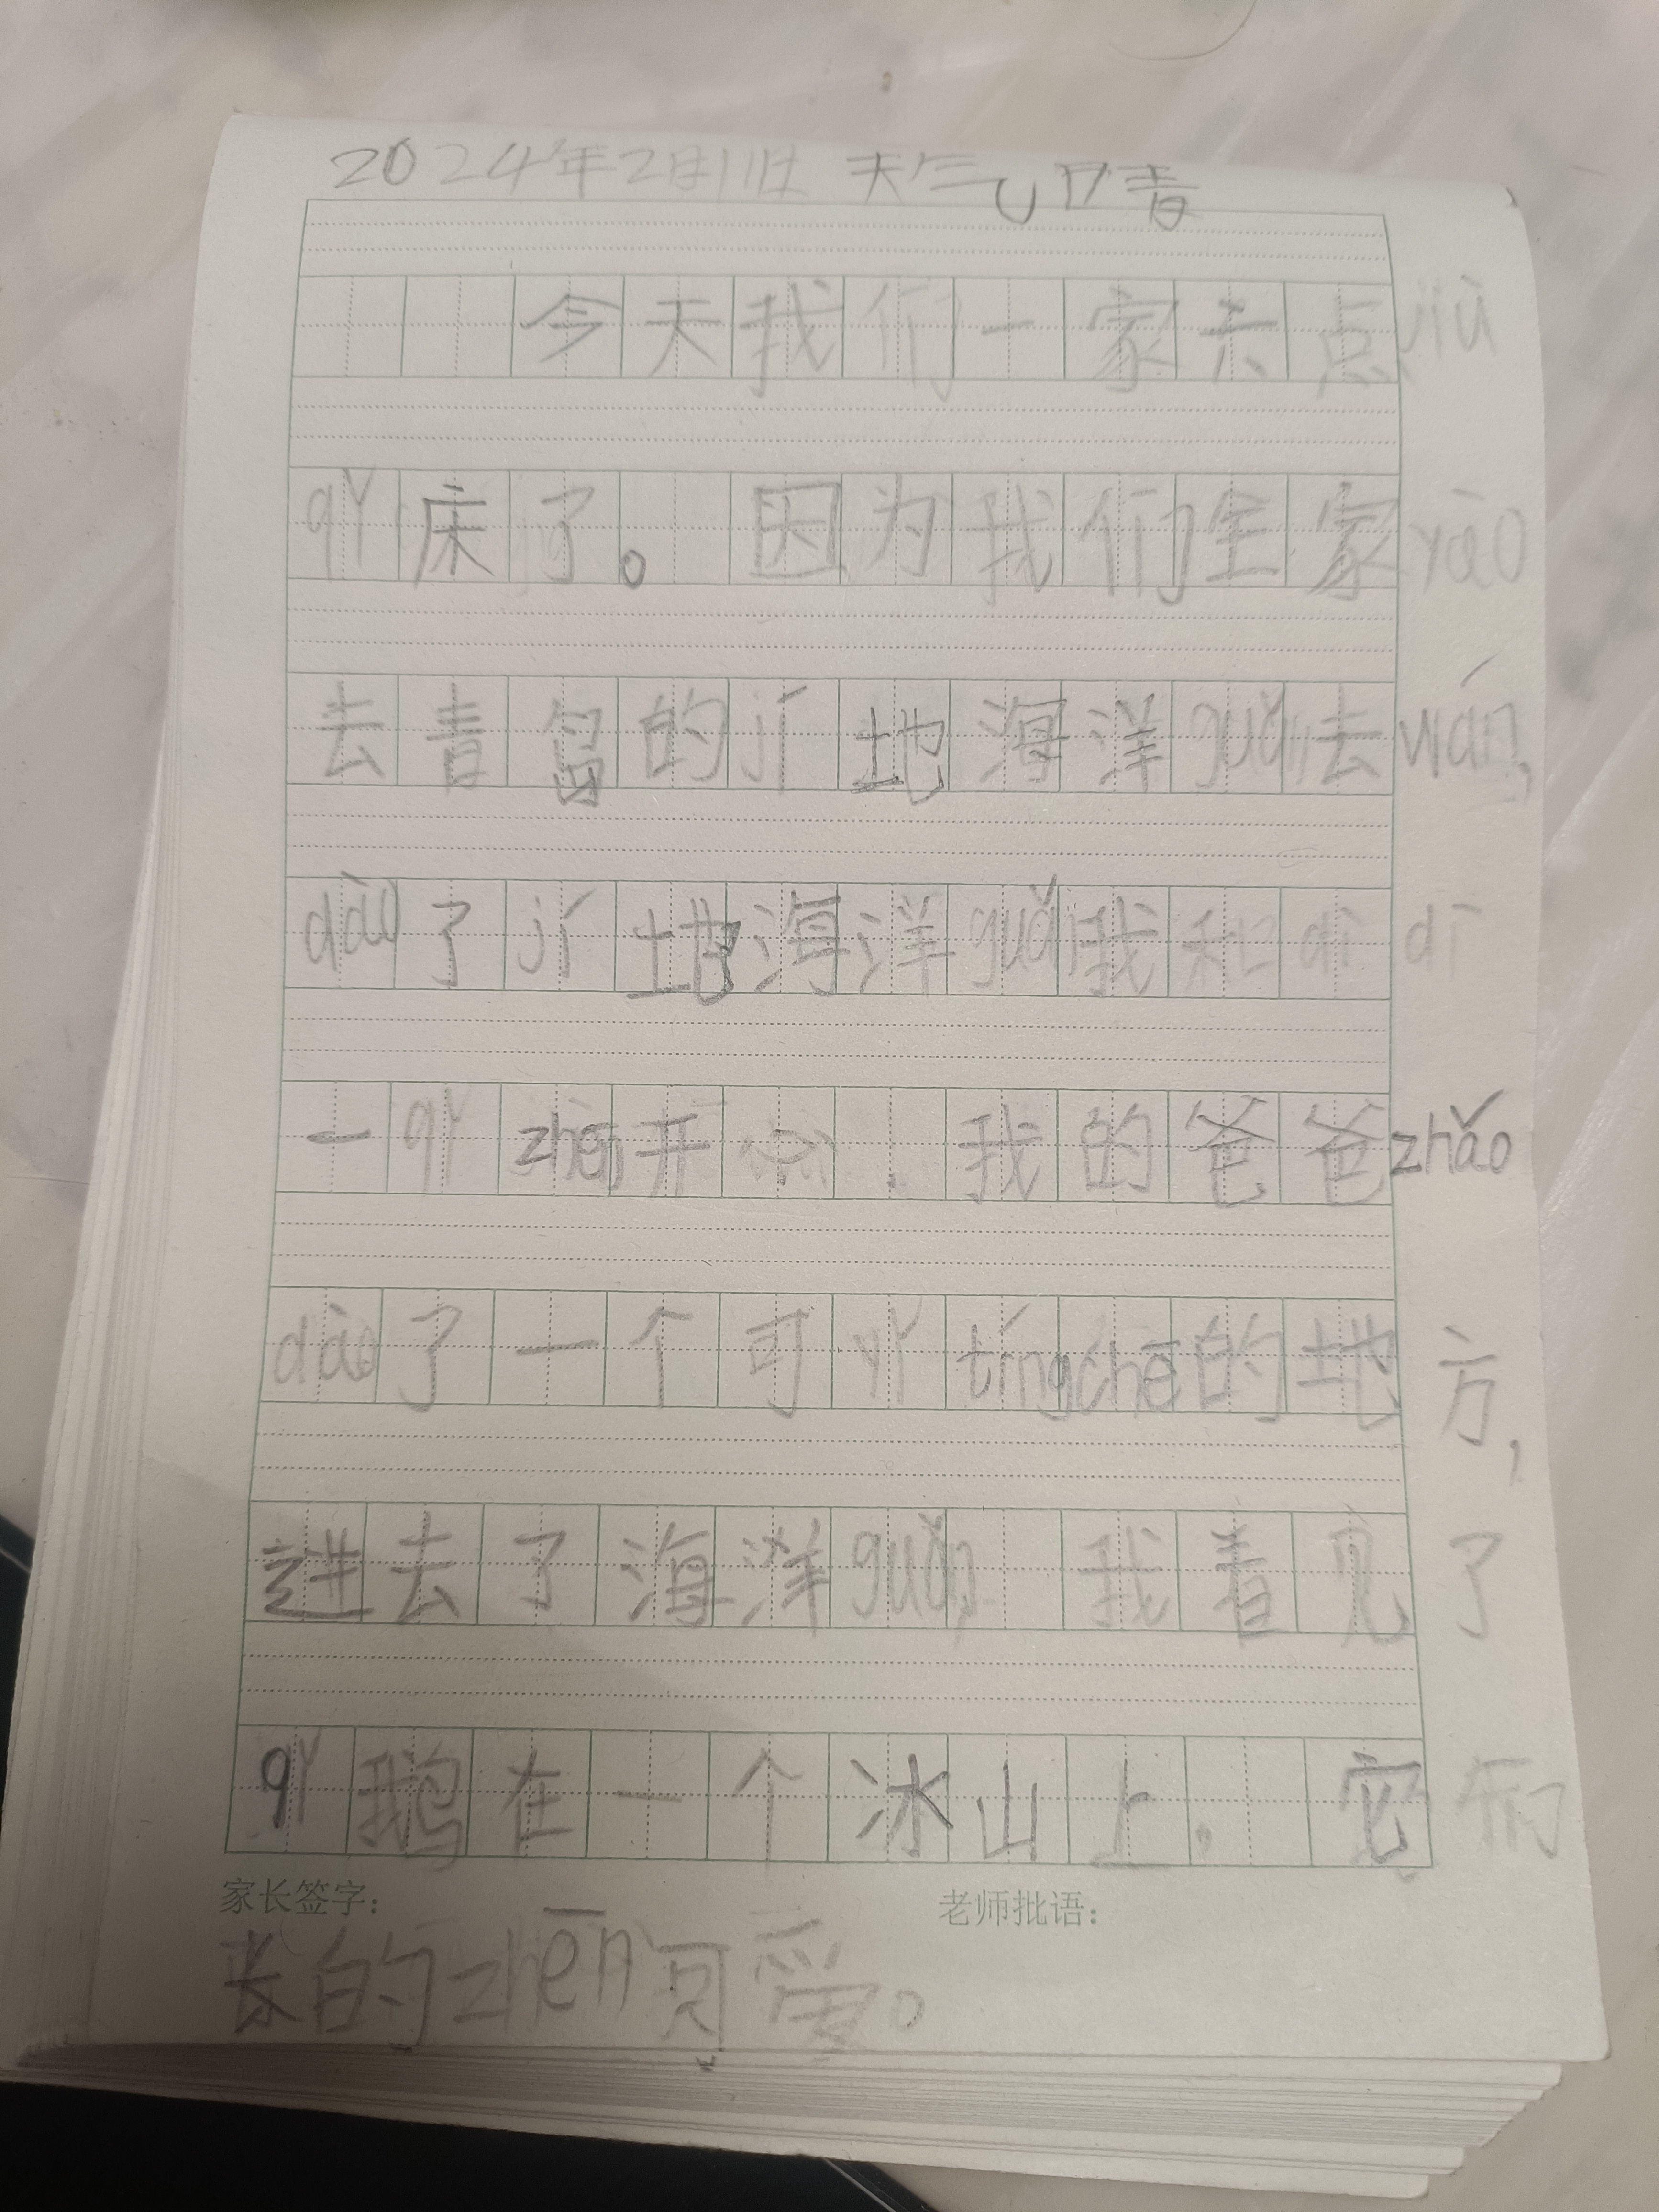 2024年2月11日 天气晴
今天我们一家六点jiù
qǐ床了。因为我们全家yào
去青岛的jí地海洋guǎn去wán,
dào了jí地海洋guǎn我和dì dī
一qǐ zhēn开心.我的爸爸zhǎo
dào了一个可yǐ tíngchē的地方,
进去了海洋guǎn,我看见了
qǐ鹅在一个冰山上.它们
家长签字: 老师批语:
长的zhēn可爱。